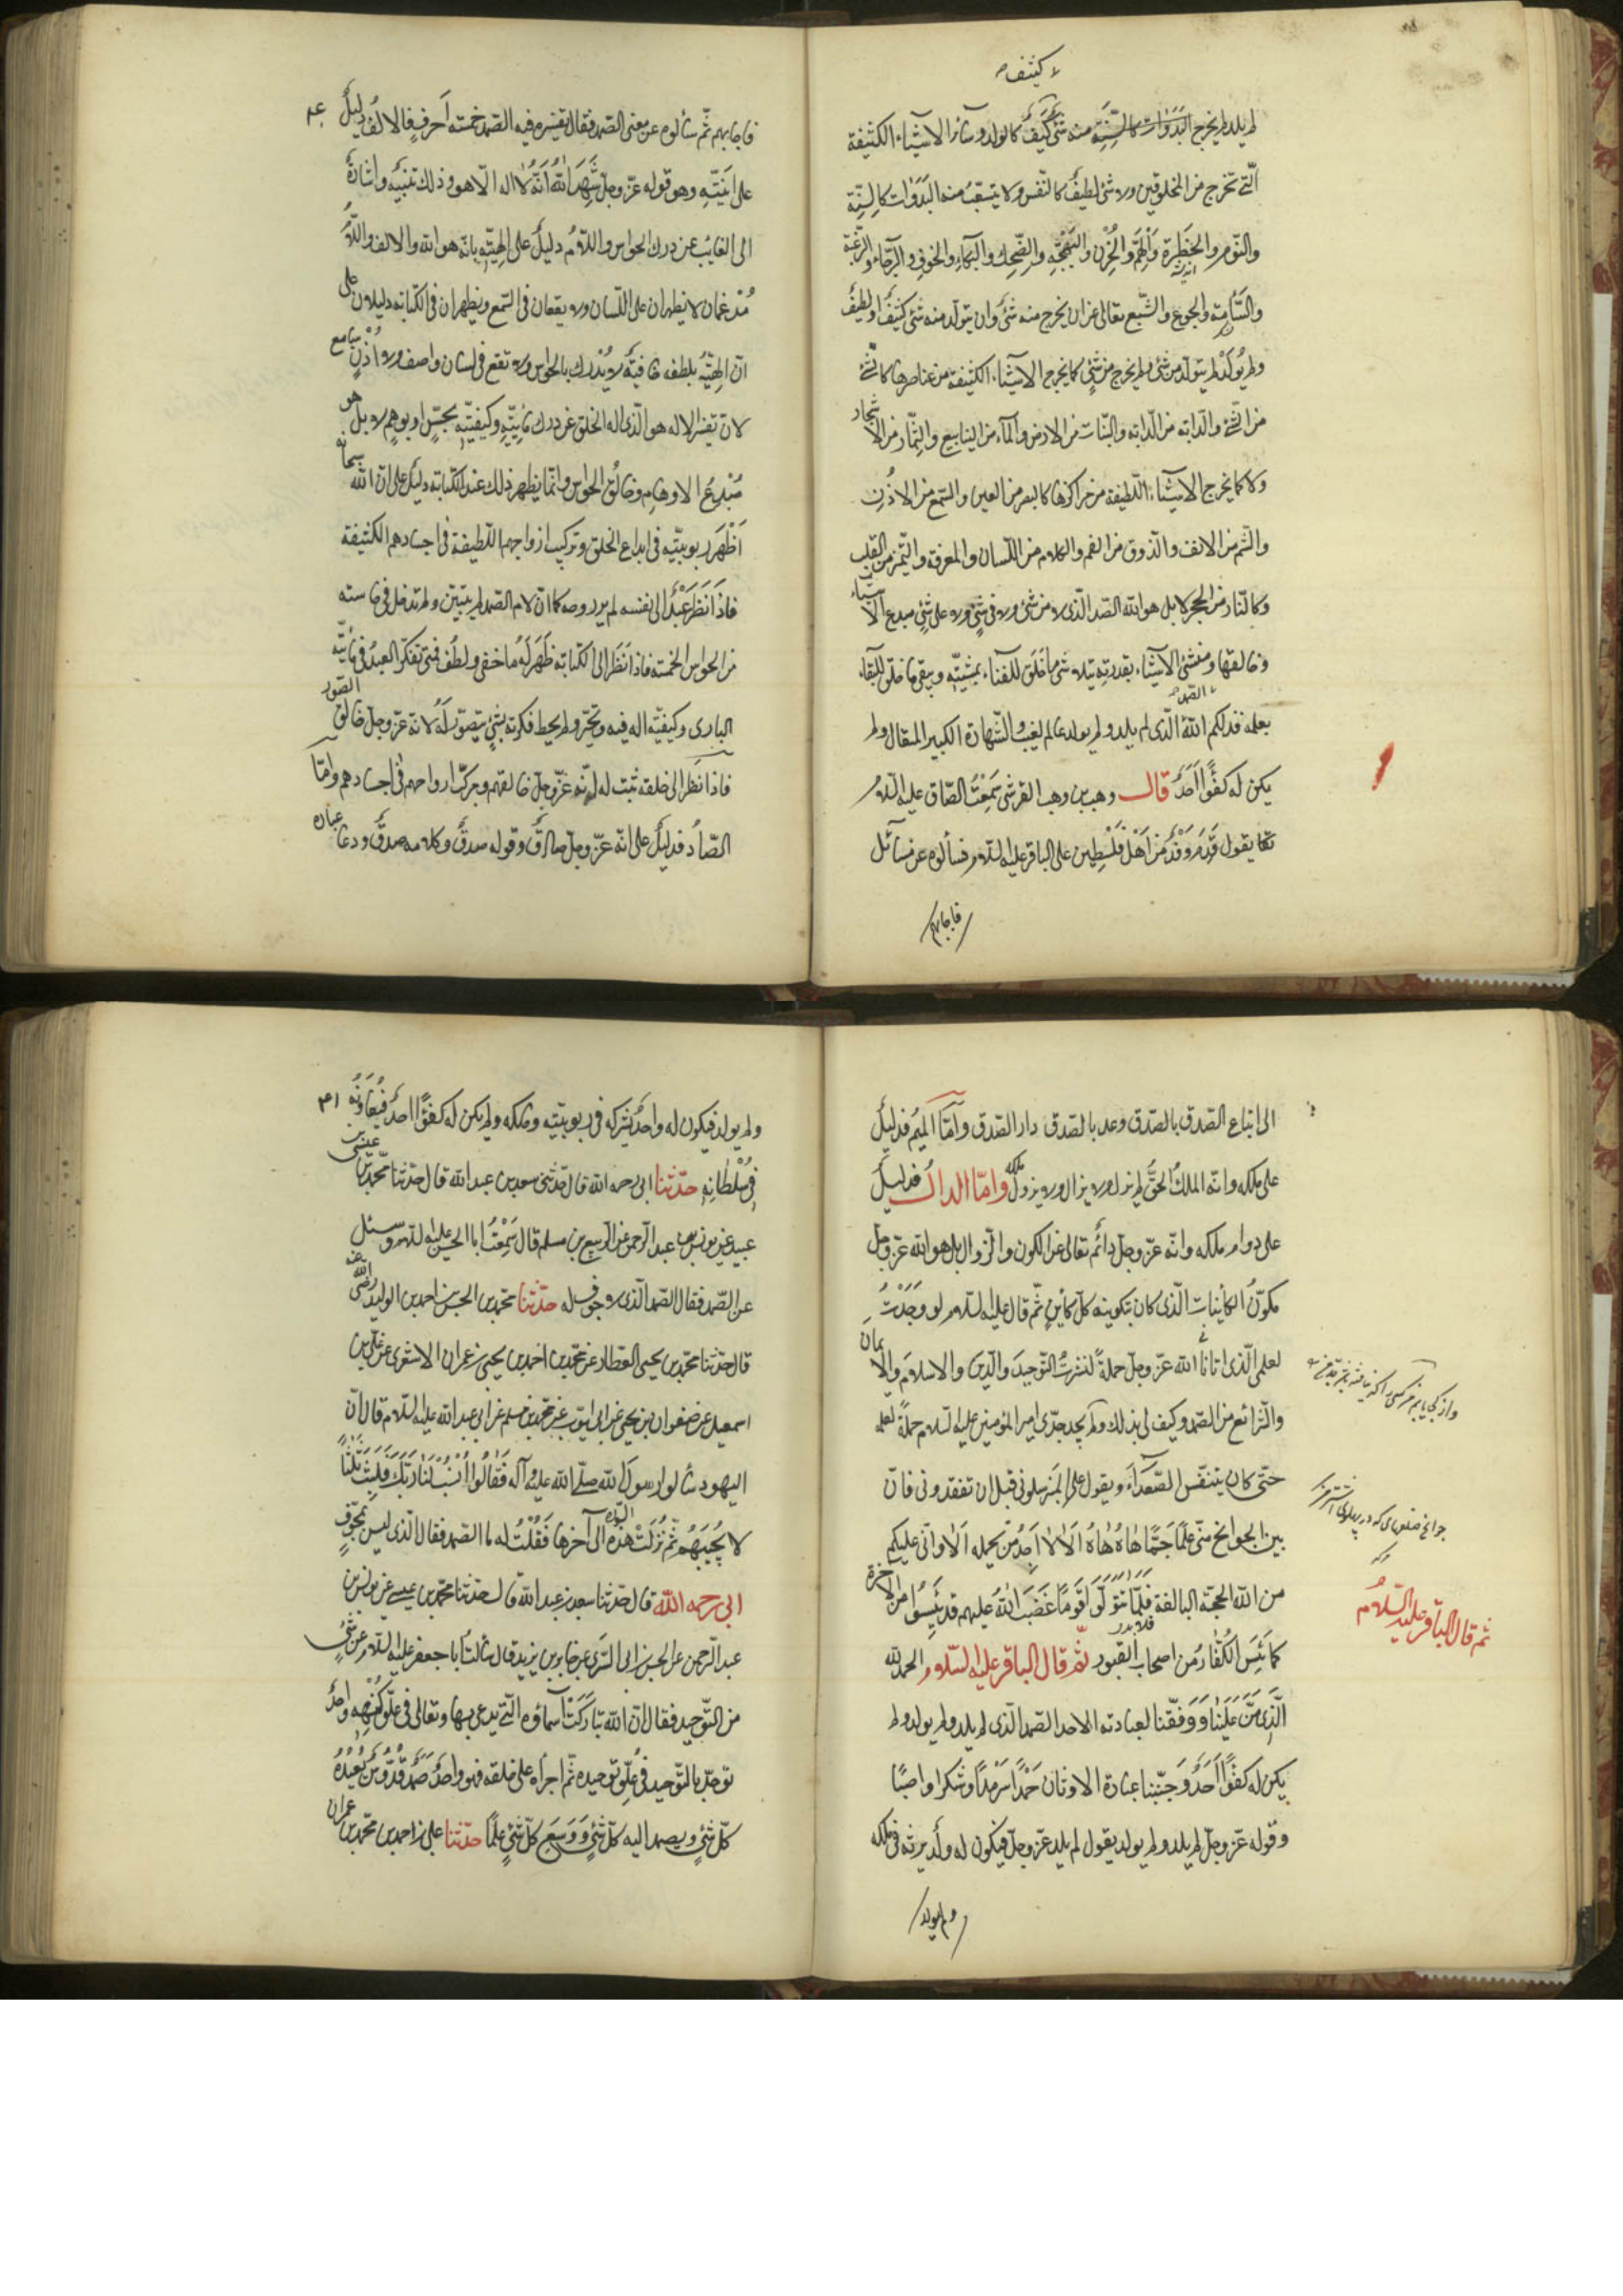 لا كثيف
لم يلد لم يخرج البدوات كالسنة منه شئ كثيف كالولد وسائر الاشياء الكثيفة
الّتى تخرج من المخلوقين ولا شئ لطيف كالنّفس ولا يتشعّب منه البدوات كالسنة
والنّوم والخطرة والهمّ والحزن والبهجة والضّحك والبكاء والخوف والرّجاء والرّغبة
والسّامة والجوع والشّبع تعالى عن ان يخرج منه شئ وان يتولّد منه شئ كثيف او لطيف
ولم يولد لم يتولّد من شئ ولم يخرج من شئ كما يخرج الاشياء الكثيفة من عناصرها كالشئ
من الشّئ والدّابة من الدّابة والنّبات من الارض والماء من الينابيع والثّمار من الاشجار
ولا كما يخرج الاشياء اللّطيفة من مراكزها كالبصر من العين والسّمع من الاذن
والشّم من الانف والذّوق من الفم والكلام من اللّسان والمعرفة والتّميز من القلب
وكالنّار من الحجر لا بل هو الله الصّمد الّذى لا من شئ ولا فى شئ ولا على شئ مبدع الاشياء
وخالقها ومنشئ الاشياء بقدرته يتلاشى ما خلق للفناء بمشيّته ويبقى ما خلق للبقاء
بعلمه فذلكم الله الصمد الّذى لم يلد ولم يولد عالم الغيب والشّهادة الكبير المتعال ولم
يكن له كفوًا احد قال وهب بن وهب القرشى سمعت الصّادق عليه السّلام
يقول قدم وفد من اهل فلسطين على الباقر عليه السّلام فسألوه عن مسائل
فاجابهم
فاجابهم ثمّ سألوه عن معنى الصّمد فقال تفسيره فيه الصّمد خمسة احرف فالالف دليل
على انيّته وهو قوله عزّ وجلّ شهد الله انّه لا اله الّا هو وذلك تنبيه واشارة
الى الغائب عن درك الحواس واللّام دليل على الهيّته بانّه هو الله والالف واللّام
مدغمان لا يظهران على اللّسان ولا يقعان فى السّمع ويظهران فى الكتابة دليلان على
انّ الهيّته بلطفه خافية لا يدرك بالحواس ولا تقع فى لسان واصف ولا اذن سامع
لانّ تفسير الاله هو الّذى اله الخلق عن درك مائيّته وكيفيّته بحسّ او بوهم لا بل هو
مبدع الاوهام وخالق الحواس وانّما يظهر ذلك عند الكتابة دليل على انّ الله سبحانه
اظهر ربوبيّته فى ابداع الخلق وتركيب ارواحهم اللّطيفة فى اجسادهم الكثيفة
فاذا نظر عبد الى نفسه لم ير روحه كما انّ لام الصّمد لم يتبيّن ولم تدخل فى حاسته
من الحواس الخمسة فاذا نظر الى الكتابة ظهر له ما خفى ولطف فمتى تفكّر العبد فى مائيّة
البارى وكيفيّته اله فيه وتحيّر ولم يحط فكرته بشئ يتصوّر له لانّه عزّ وجلّ خالق الصّور
فاذا نظر الى خلقه ثبت له انّه عزّ وجلّ خالقهم ومركّب ارواحهم فى اجسادهم وامّا
الصّاد فدليل على انّه عزّ وجلّ صادق وقوله صدق وكلامه صدق ودعا عباده
الى اتباع الصّدق بالصّدق وعد بالصّدق دار الصّدق وامّا الميم فدليل
على ملكه وانّه الملك الحقّ لم يزل ولا يزال ولا يزول ملكه وامّا الدال فدليل
على دوام ملكه وانّه عزّ وجلّ دائم تعالى عن الكون والزّوال بل هو الله عزّ وجلّ
مكوّن الكائنات الّذى كان بتكوينه كلّ كائن ثمّ قال عليه السّلام لو وجدت
لعلمى الّذى اتانى الله عزّ وجلّ حملة لنشرت التّوحيد والدّين والاسلام والايمان
والشّرائع من الصّمد وكيف لى بذلك ولم يجد جدّى امير المؤمنين عليه السّلام حملة لعلمه
حتّى كان يتنفّس الصّعداء ويقول على المنبر سلونى قبل ان تفقدونى فانّ
بين الجوانح منّى علمًا جمًّا هاه هاه الا لا اجد من يحمله الا وانّى عليكم
من الله الحجّة البالغة فلا تتولّوا قومًا غضب الله عليهم قد يئسوا من الاخرة
كما يئس الكفّار من اصحاب القبور ثم قال الباقر عليه السّلام الحمد لله
الّذى منّ علينا ووفّقنا لعبادته الاحد الصّمد الّذى لم يلد ولم يولد ولم
يكن له كفوًا احد وجنّبنا عبادة الاوثان حمدًا سرمدًا وشكرا واصبًا
وقوله عزّ وجلّ لم يلد ولم يولد يقول لم يلد عزّ وجلّ فيكون له ولد يرثه فى ملكه
ثم قال الباقر عليه السّلام
ولم يولد
ولم يولد فيكون له والد يشركه فى ربوبيّته وملكه ولم يكن له كفوًا احد فيعاونه
فى سلطانه حدّثنا ابى رحمه الله قال حدّثنى سعد بن عبد الله قال حدّثنا محمّد بن عيسى بن
عبيد عن يونس بن عبد الرّحمن عن الرّبيع بن مسلم قال سمعت ابا الحسن عليه السّلام وسئل
عن الصّمد فقال الصّمد الّذى لا جوف له حدّثنا محمّد بن الحسن بن احمد بن الوليد رضى الله عنه
قال حدّثنا محمّد بن يحيى العطّار عن محمّد بن احمد بن يحيى بن عمران الاشعرى عن على بن
اسمعيل عن صفوان بن يحيى عن ابى ايّوب عن محمّد بن مسلم عن ابى عبد الله عليه السّلام قال انّ
اليهود سألوا رسول الله صلّى الله عليه وآله فقالوا انسب لنا ربّك فلبث ثلثًا
لا يجيبهم ثمّ نزلت هذه السّورة الى آخرها فقلت له ما الصّمد فقال الّذى ليس بمجوّف
ابى رحمه الله قال حدّثنا سعد بن عبد الله قال حدّثنا محمّد بن عيسى عن يونس بن
عبد الرّحمن عن الحسن بن ابى السّرى عن جابر بن يزيد قال سألت ابا جعفر عليه السّلام عن شئ
من التّوحيد فقال انّ الله تباركت اسماؤه الّتى يدعى بها وتعالى فى علوّ كنهه واحد
توحّد بالتّوحيد فى علوّ توحيده ثمّ اجراه على خلقه فهو واحد صمد قدّوس يعبده
كلّ شئ ويصمد اليه كلّ شئ ووسع كلّ شئ علمًا حدّثنا على بن احمد بن محمّد بن عمران